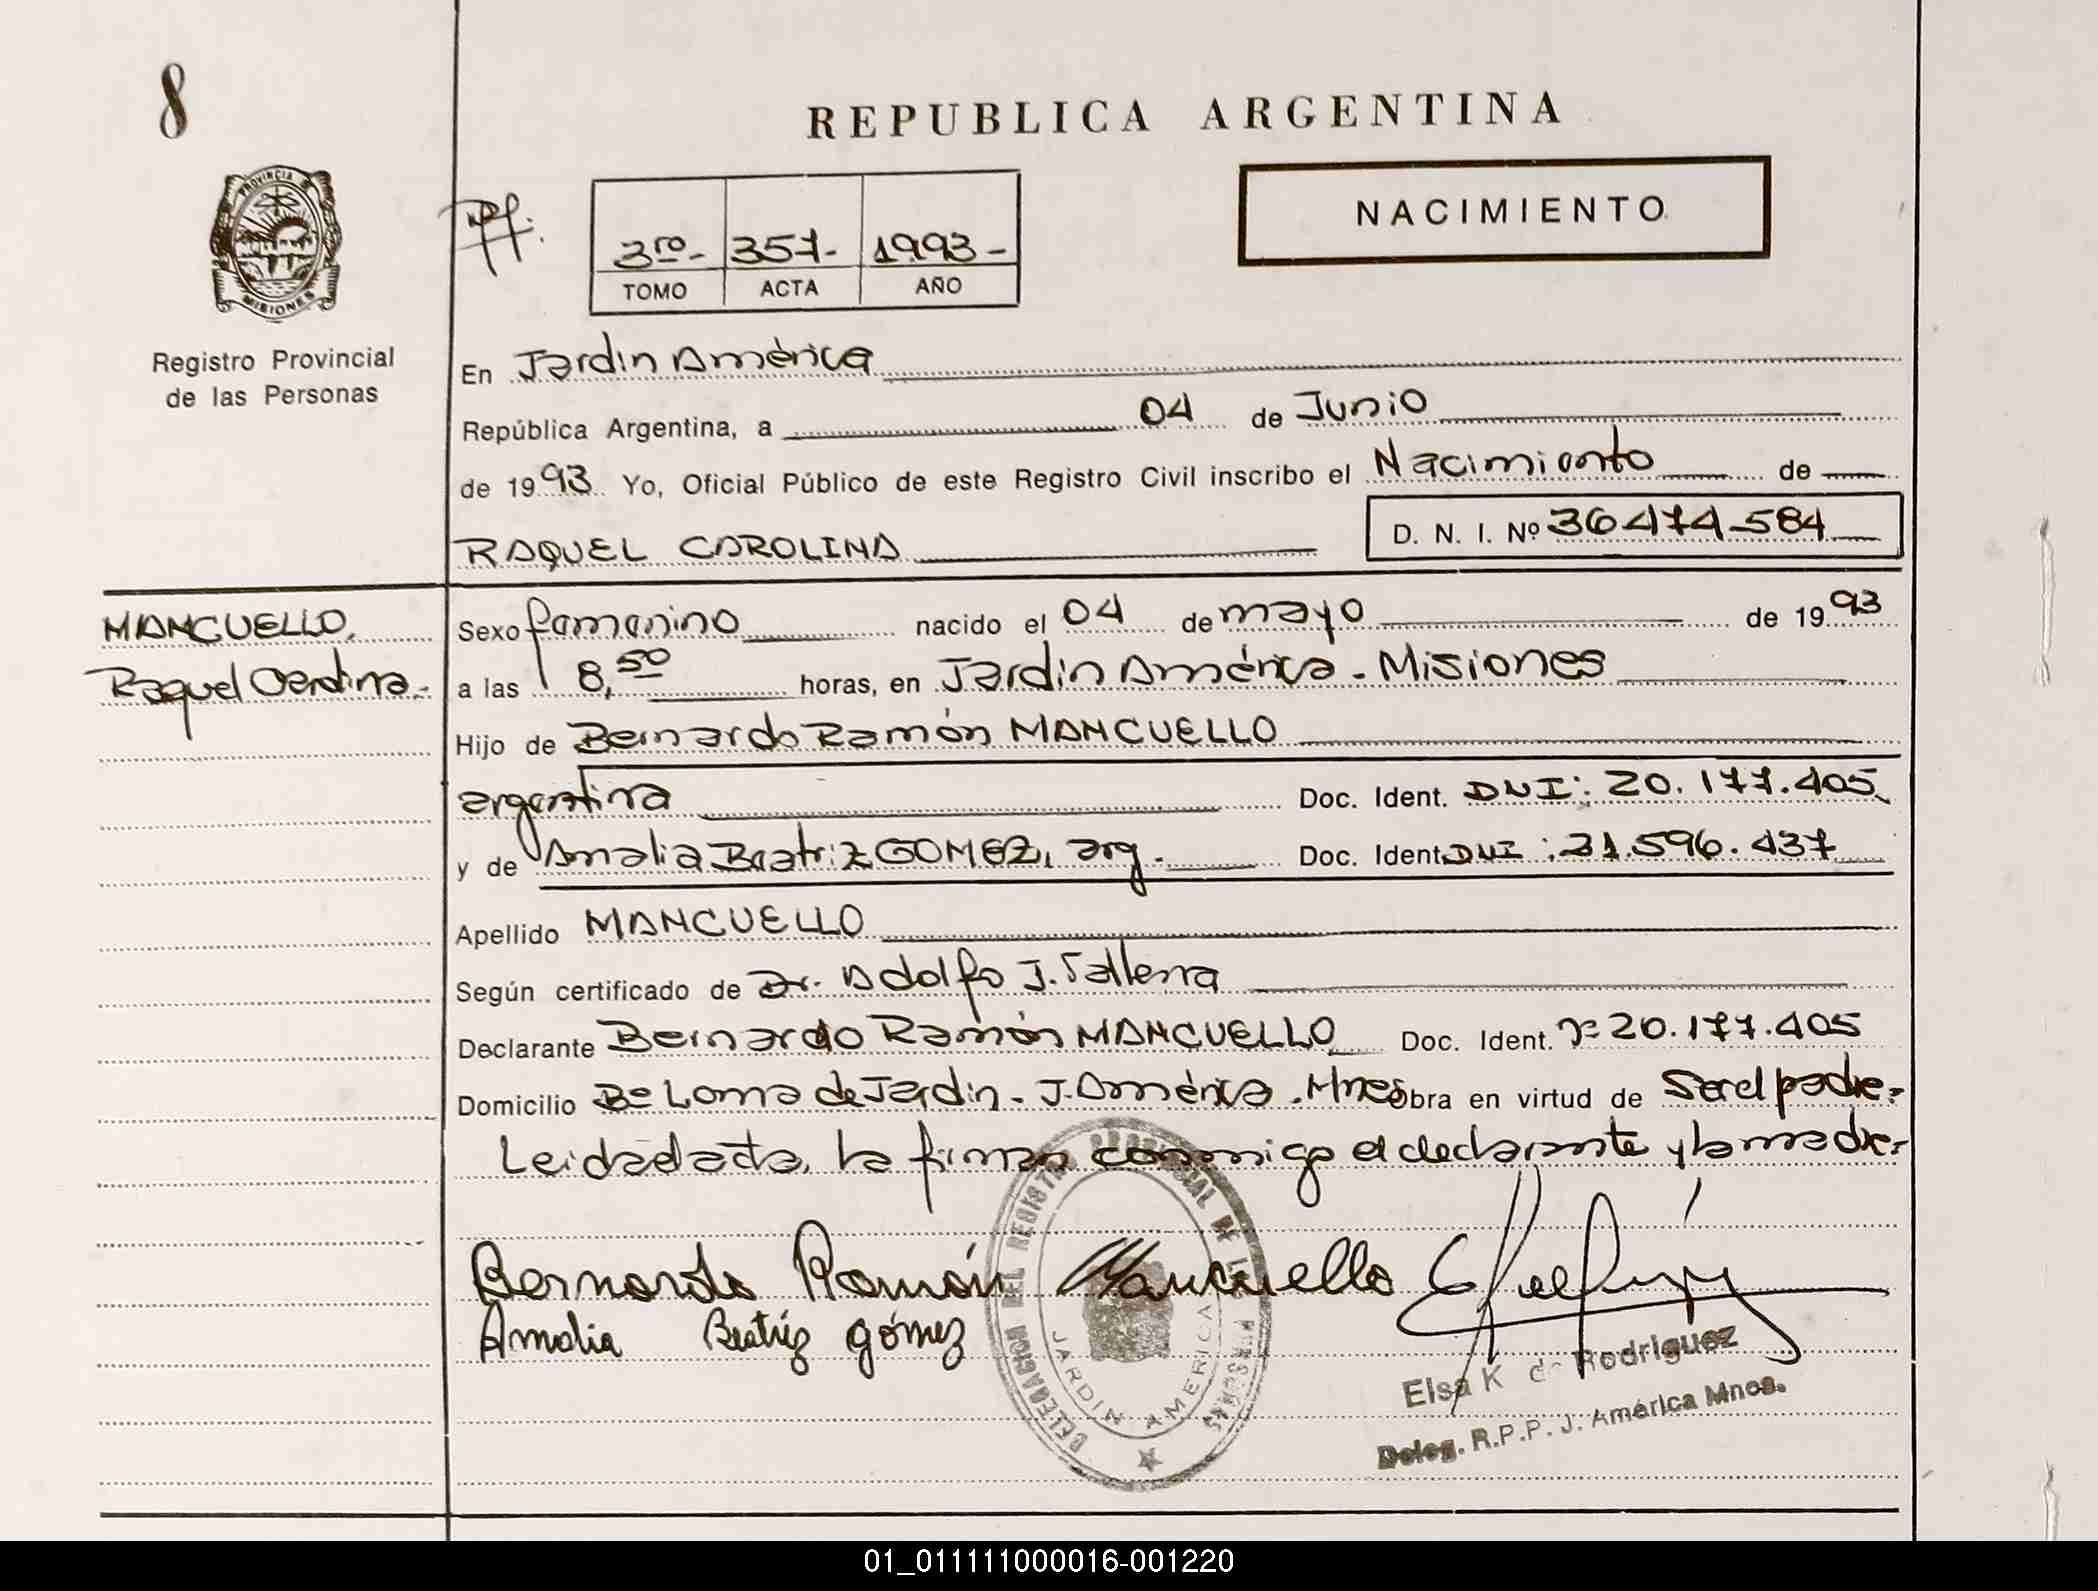 8
REPUBLICA ARGENTINA
PROVINCIA
MISIONES
Registro Provincial
de las Personas
3ro- 357- 1993-
TOMO ACTA AÑO
NACIMIENTO
En Jardin América
República Argentina, a 04 de Junio
de 1993 Yo, Oficial Público de este Registro Civil inscribo el Nacimiento de
RAQUEL CAROLINA D. N. I. Nº 36474584
MANCUELLO,
Raquel Carolina.-
Sexo femenino nacido el 04 de mayo de 1993
a las 8,50 horas, en Jardin América - Misiones
Hijo de Bernardo Ramón MANCUELLO
argentina Doc. Ident. DNI: 20.177.405
y de Amalia Beatriz GOMEZ, arg. Doc. Ident. DNI: 21.596.437
Apellido MANCUELLO
Según certificado de Dr. Adolfo J.
Declarante Bernardo Ramón MANCUELLO Doc. Ident. 20.177.405
Domicilio Bº Loma de Jardin - J. América - Mnes Obra en virtud de ser el padre.
Leida el acta, la firman conmigo el declarante y la madre.
Bernardo Ramón Mancuello
Amalia Beatriz Gómez
DELEGACION DEL REGISTRO PROVINCIAL DE LAS PERSONAS
JARDIN AMERICA
Elsa K de Rodriguez
Deleg. R.P.P. J. América Mnes.
01_011111000016-001220